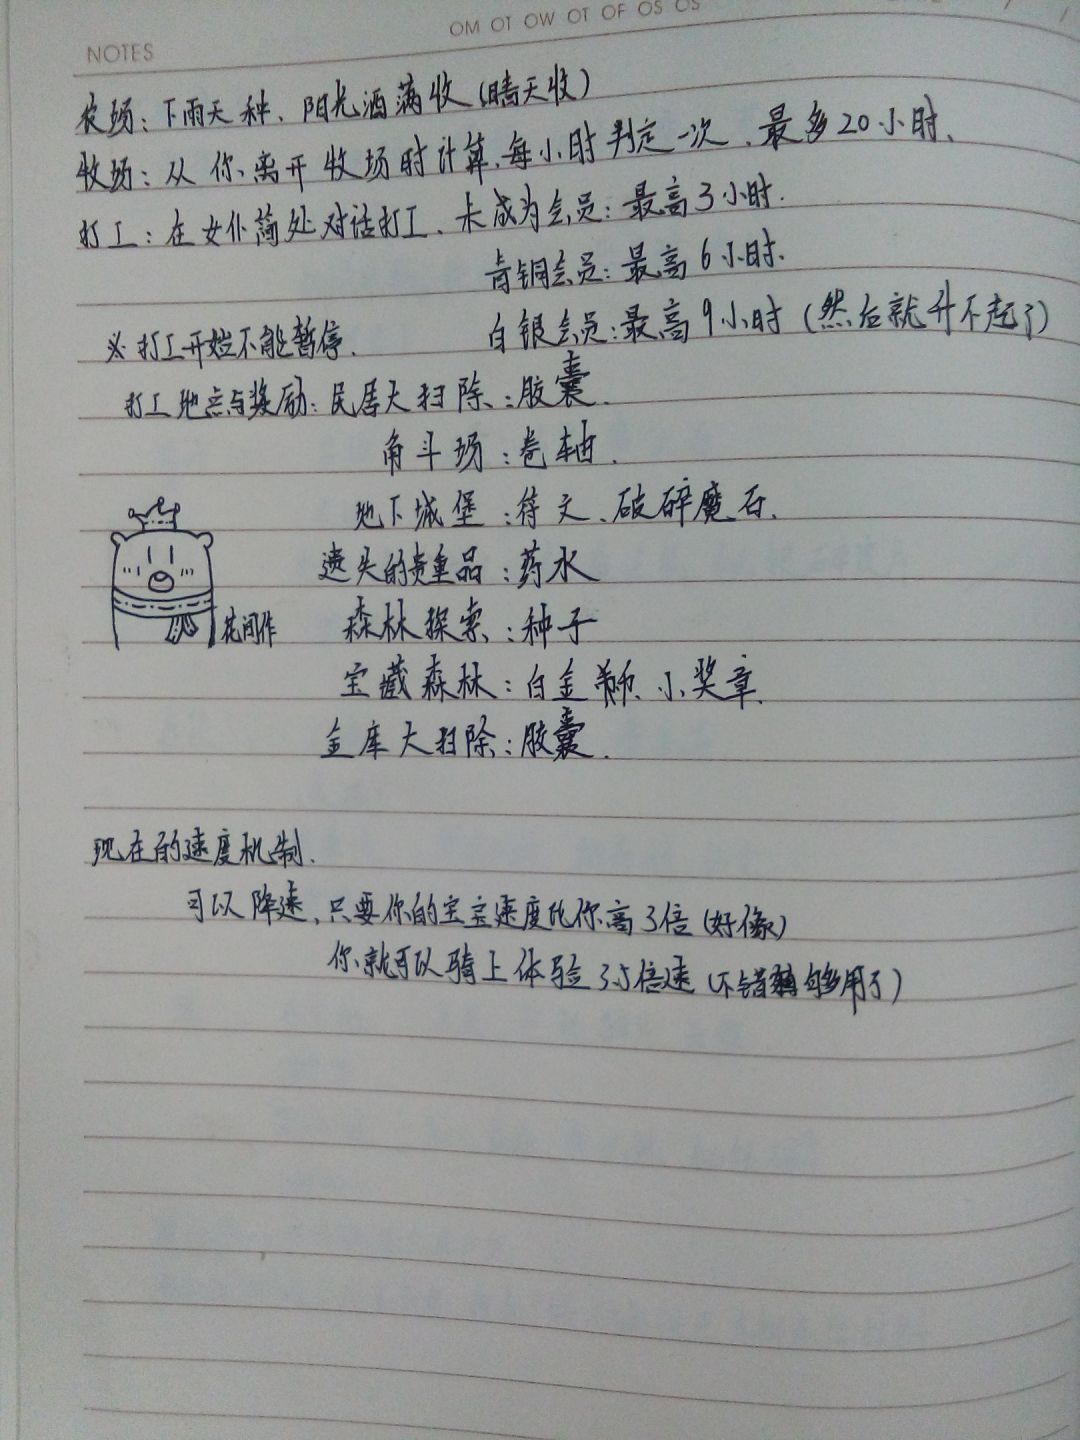 NOTES
OM OT OW OT OF OS OS
农场：下雨天种、阳光洒满收（晴天收）
牧场：从你离开牧场时计算、每小时判定一次、最多20小时、
打工：在女仆简处对话打工、未成为会员：最高3小时.
青铜会员：最高6小时.
白银会员：最高9小时（然后就升不起了）
※打工开始不能暂停.
打工地点与奖励：民居大扫除：胶囊.
角斗场：卷轴.
地下城堡：符文、破碎魔石.
遗失的贵重品：药水
森林探索：种子
宝藏森林：白金狮、小奖章.
金库大扫除：胶囊.
花间作
现在的速度机制.
可以降速，只要你的宝宝速度比你高3倍（好像）
你就可以骑上体验3.5倍速（不错够用了）